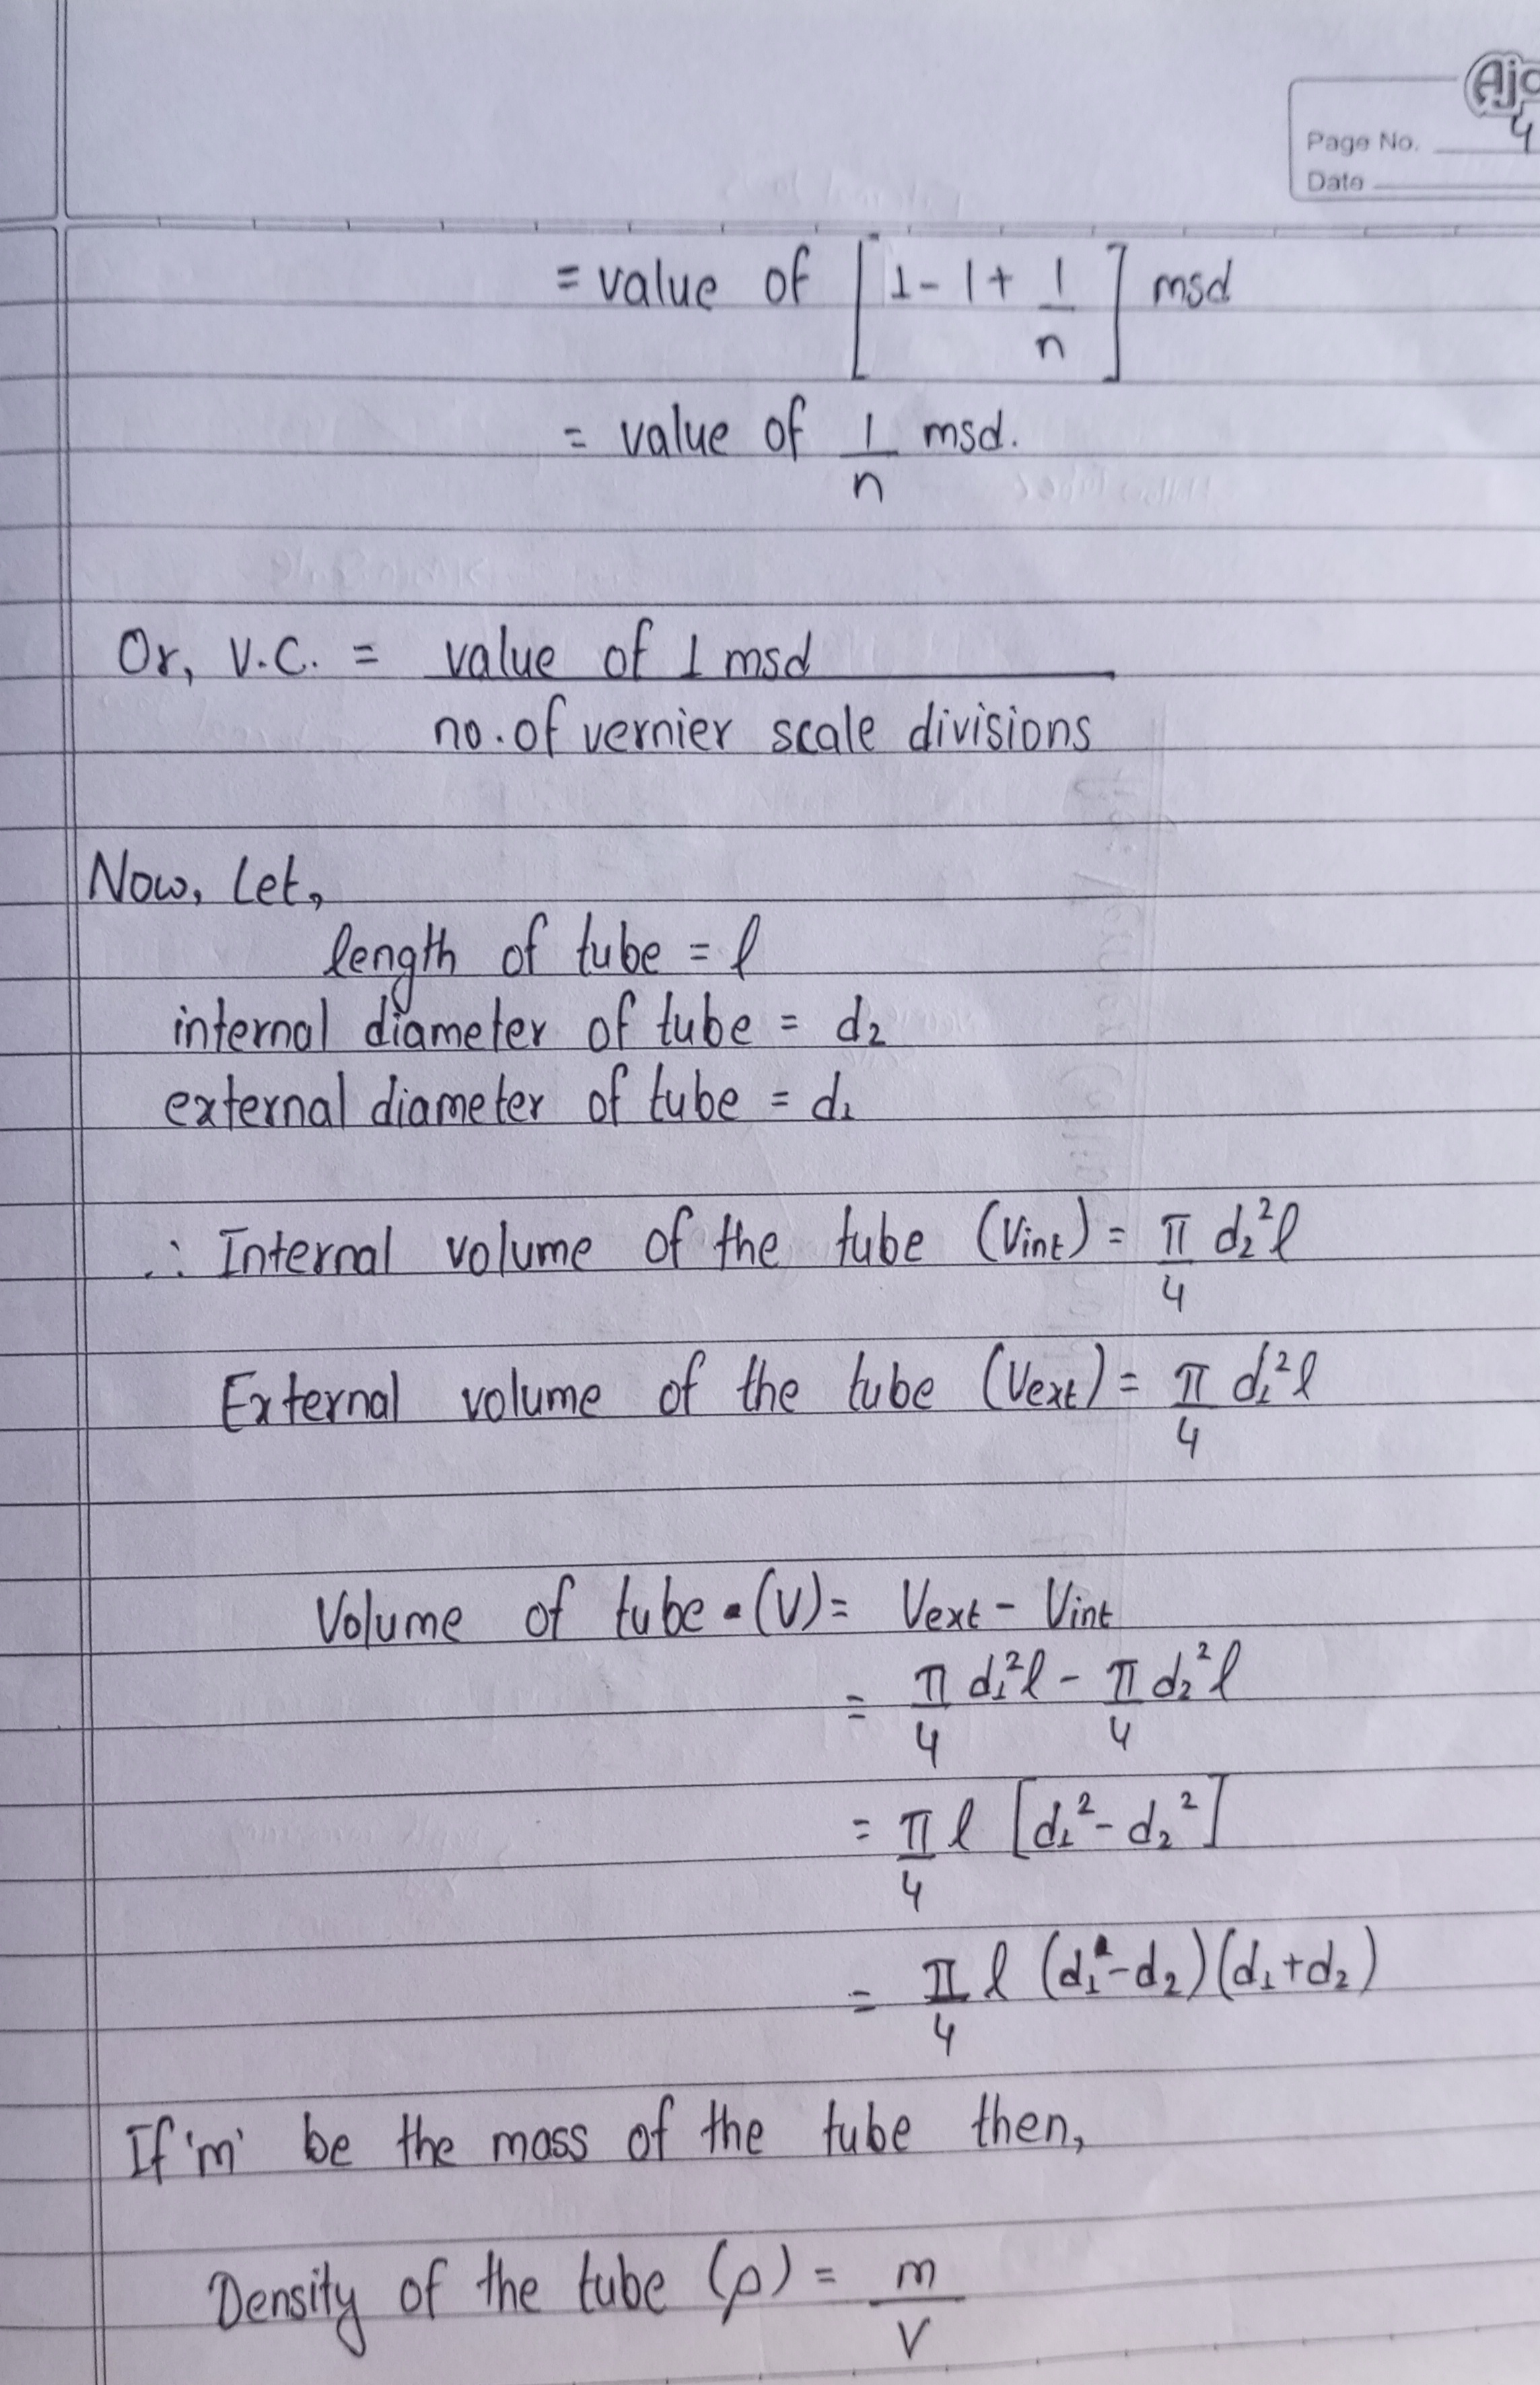 Ajo
Page No. 4
Date
= value of [1 - 1 + 1/n] msd
= value of 1/n msd.
Or, V.C. = value of 1 msd / no. of vernier scale divisions
Now, Let,
length of tube = l
internal diameter of tube = d₂
external diameter of tube = d₁
∴ Internal volume of the tube (Vint) = π/4 d₂²l
External volume of the tube (Vext) = π/4 d₁²l
Volume of tube (V) = Vext - Vint
= π/4 d₁²l - π/4 d₂²l
= π/4 l [d₁² - d₂²]
= π/4 l (d₁ - d₂)(d₁ + d₂)
If 'm' be the mass of the tube then,
Density of the tube (ρ) = m/V